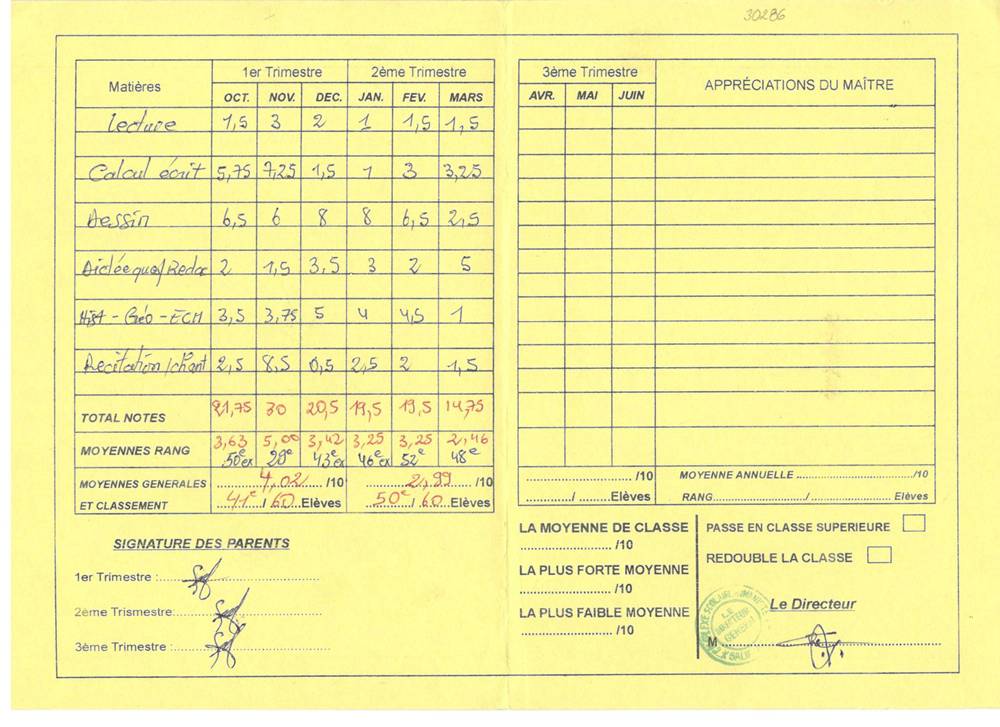 30286
Matières 1er Trimestre 2ème Trimestre
OCT. NOV. DEC. JAN. FEV. MARS
Lecture 1,5 3 2 1 1,5 1,5
Calcul écrit 5,75 7,25 1,5 1 3 3,25
Dessin 6,5 6 8 8 6,5 2,5
Dictée ques/Redac 2 1,5 3,5 3 2 5
Hist - Géo - ECM 3,5 3,75 5 4 4,5 1
Recitation/chant 2,5 8,5 0,5 2,5 2 1,5
TOTAL NOTES 21,75 30 20,5 19,5 19,5 14,75
MOYENNES RANG 3,63 5,00 3,42 3,25 3,25 2,46
50e ex 29e 43e ex 46e ex 52e 48e
MOYENNES GENERALES 4,02 /10 2,99 /10
ET CLASSEMENT 41e / 60 Elèves 50e / 60 Elèves
SIGNATURE DES PARENTS
1er Trimestre :
2ème Trismestre:
3ème Trimestre :
3ème Trimestre APPRÉCIATIONS DU MAÎTRE
AVR. MAI JUIN
/10 MOYENNE ANNUELLE /10
/ Elèves RANG / Elèves
LA MOYENNE DE CLASSE
/10
LA PLUS FORTE MOYENNE
/10
LA PLUS FAIBLE MOYENNE
/10
PASSE EN CLASSE SUPERIEURE
REDOUBLE LA CLASSE
Le Directeur
M
LE
DIRECTEUR
GENERAL